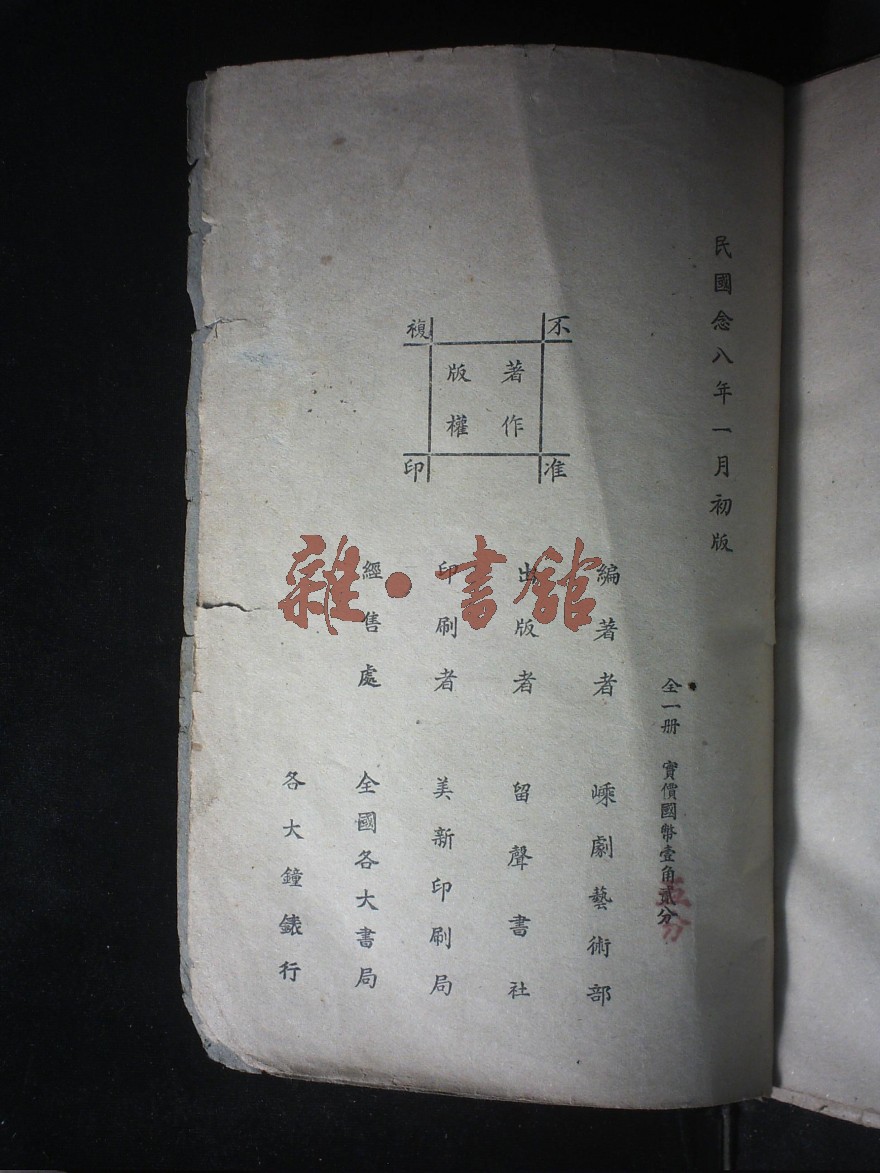 民國念八年一月初版
全一册 實價國幣壹角貳分
五分
不准複印
著作版權
編著者 嵊劇藝術部
出版者 留聲書社
印刷者 美新印刷局
經售處 全國各大書局
各大鐘錶行
雜·書館